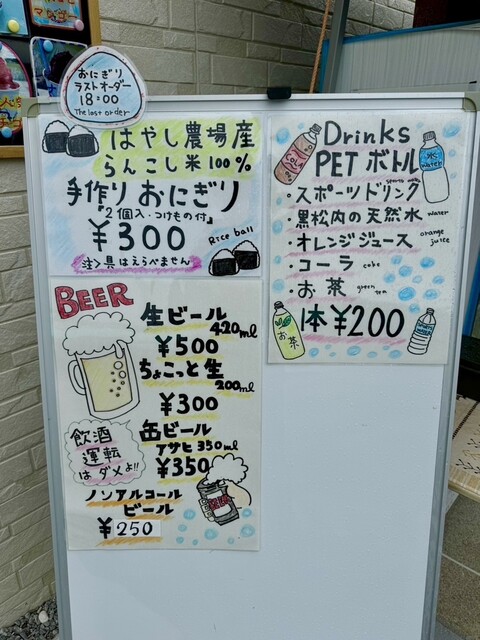 おにぎり
ラストオーダー
18:00
The last order
はやし農場産
らんこし米100%
手作りおにぎり
「2個入・つけもの付」
¥300
注)具はえらべません
Rice ball
BEER
生ビール
420ml
¥500
ちょこっと生
200ml
¥300
缶ビール
アサヒ 350ml
¥350
飲酒
運転
はダメよ!!
ノンアルコール
ビール
¥250
Drinks
PETボトル
・スポーツドリンク
・黒松内の天然水 water
・オレンジジュース orange juice
・コーラ coke
・お茶 green tea
1本¥200
コーラ
水
water
お茶